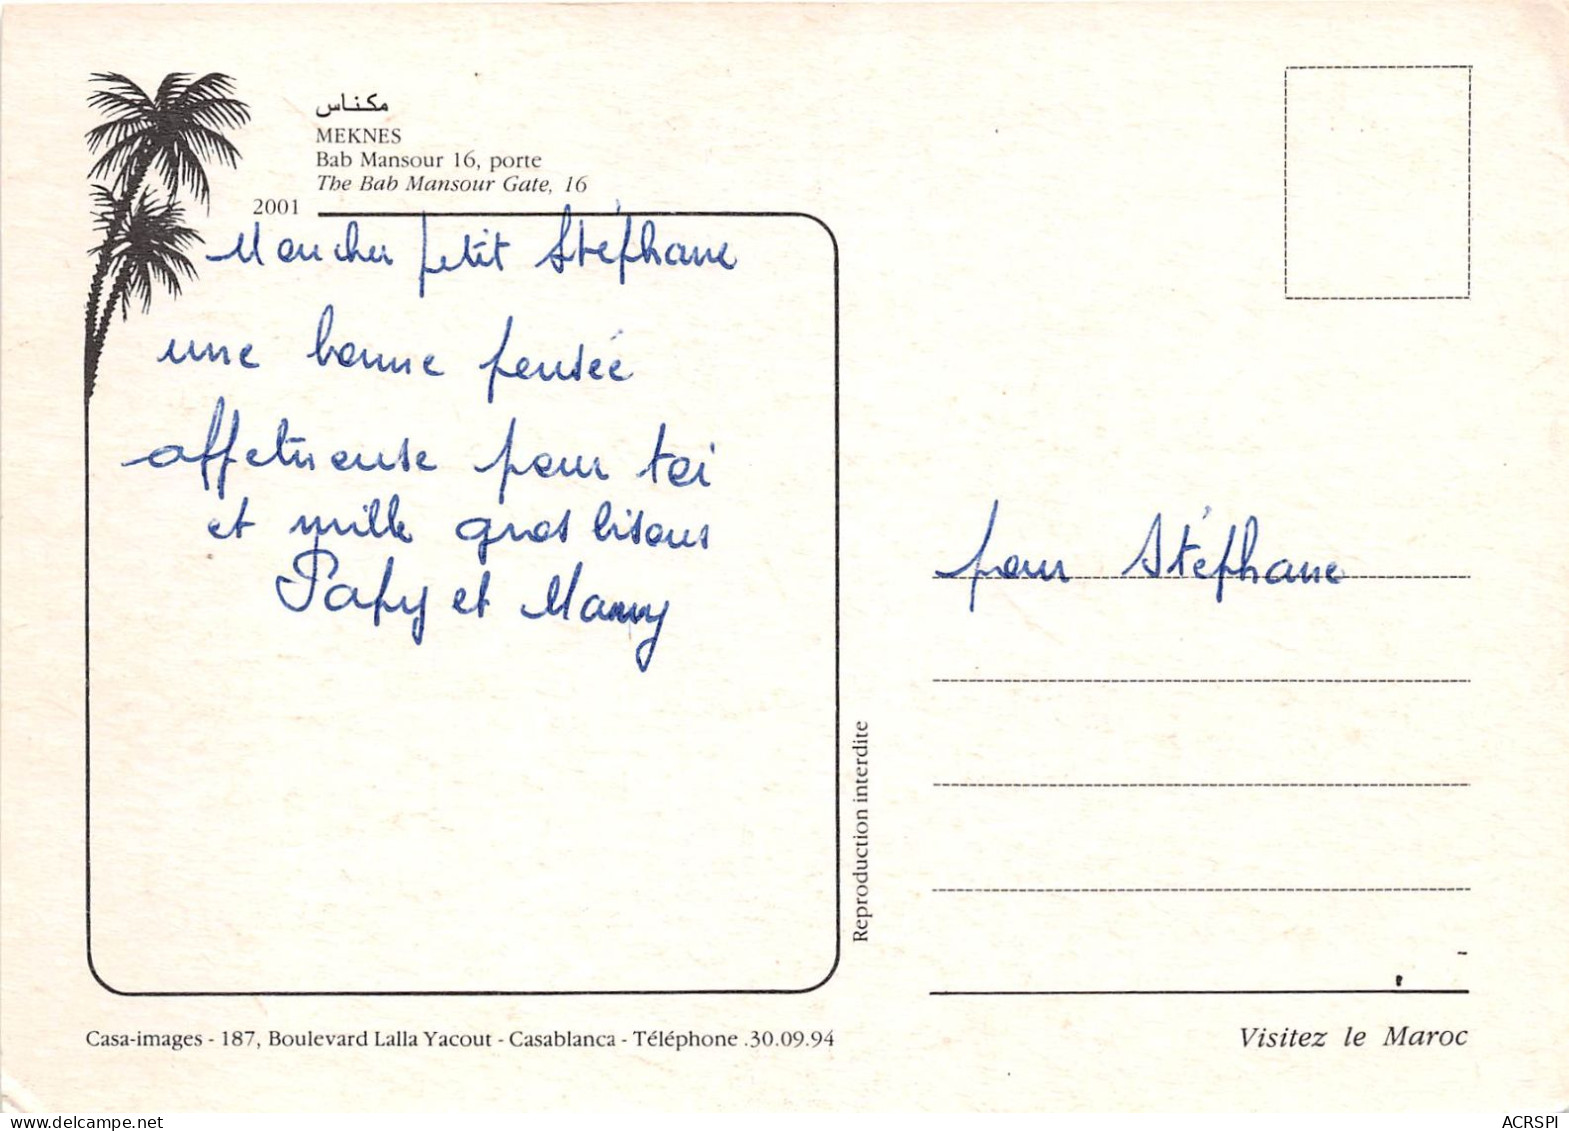 مكناس
MEKNES
Bab Mansour 16, porte
The Bab Mansour Gate, 16
2001
Mon cher petit Stéphane
une bonne pensée
affetueuse pour toi
et mille gros bisous
Papy et Mamy
pour Stéphane
Reproduction interdite
Casa-images - 187, Boulevard Lalla Yacout - Casablanca - Téléphone .30.09.94
Visitez le Maroc
ACRSPI